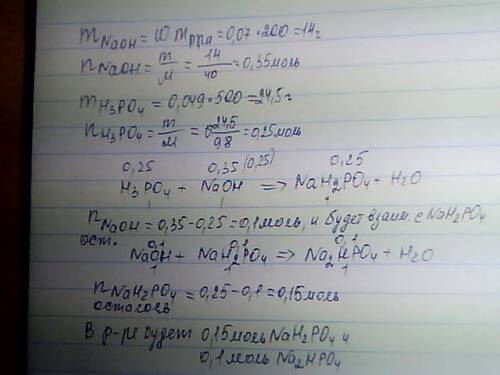 m NaOH = ω m р-ра = 0,07·200 = 14г
n NaOH = m/M = 14/40 = 0,35моль
m H3PO4 = 0,049·500 = 24,5г
n H3PO4 = m/M = 24,5/98 = 0,25моль
0,25 0,35 (0,25) 0,25
H3PO4 + NaOH => NaH2PO4 + H2O
1 1 1
n NaOH = 0,35-0,25 = 0,1моль, и будет взаим. с NaH2PO4
ост.
0,1 0,1 0,1
NaOH + NaH2PO4 => Na2HPO4 + H2O
1 1 1
n NaH2PO4 = 0,25-0,1 = 0,15моль
осталось
В р-ре будет 0,15моль NaH2PO4 и
0,1моль Na2HPO4